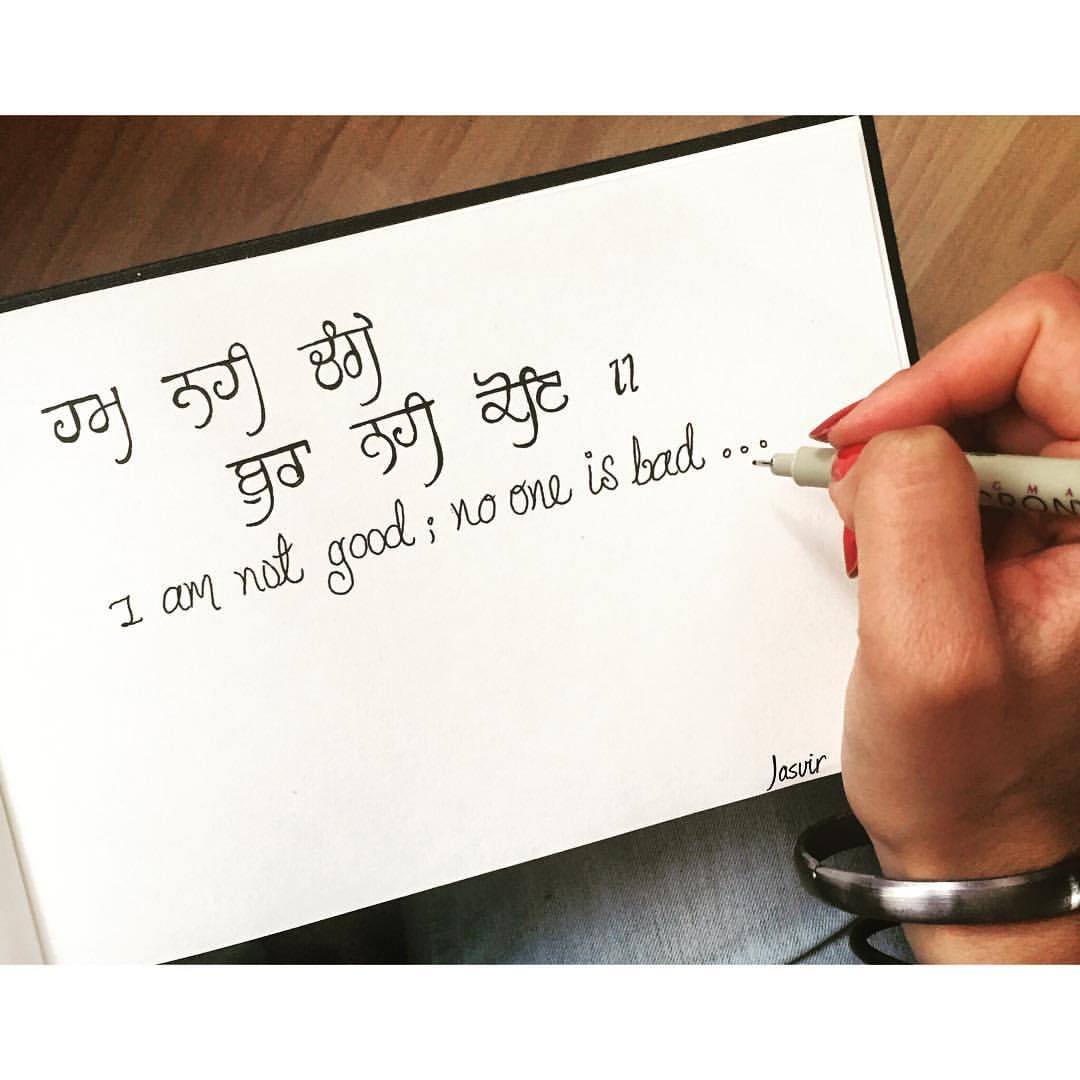 ਹਮ ਨਹੀ ਚੰਗੇ
ਬੁਰਾ ਨਹੀ ਕੋਇ ॥
I am not good; no one is bad ...
Jasvir